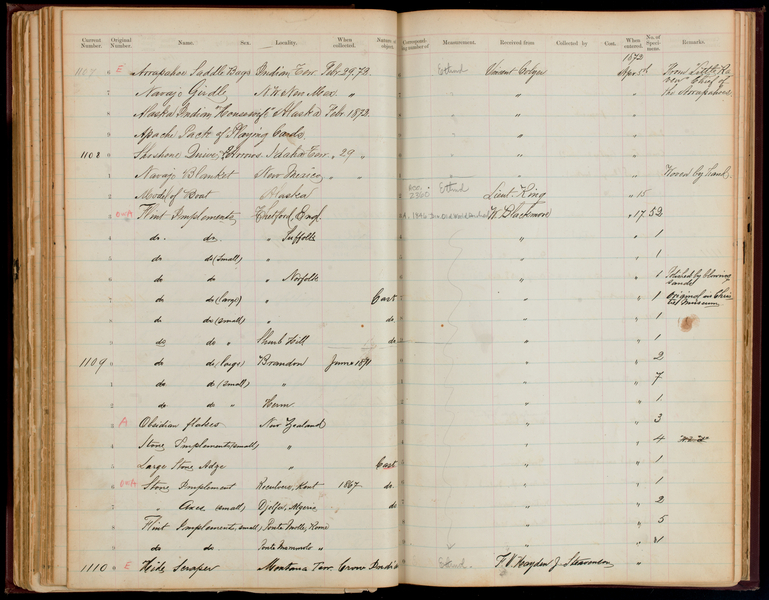 Current Number. Original Number. Name. Sex. Locality. When collected. Nature of object. Correspond-ing number of Measurement. Received from Collected by Cost. When entered. No. of Speci-mens. Remarks.
1872
1107 0 E Arrapahoe Saddle Bags Indian Terr. Feb. 29. 72. Ethnd Vincent Colyer Apr. 5th From Little Ra-ven Chief of the Arrapahoes
7 Navajo Girdle N.W. New Mex. " " "
8 Alaska Indian "Housewife" Alaska Feb. 1872. " "
9 Apache Pack of Playing Cards " "
1108 0 Shoshone Quiver, Arrows. Idaho Terr. " 29 " " "
1 Navajo Blanket New Mexico " " " " Woven by hand.
2 Model of Boat Alaska 2360 Ethnd Lieut. King " 15
3 Flint Implements, Thetford, Eng. W. Blackmore " 17. 52
4 do. do. " Suffolk " " 1
5 do do (small) " " " 1
6 do do " Norfolk " " 1 Polished by blowing sands
7 do do (large) " Cast " " 1 Original in Chris-ties Museum
8 do do (small) " do. " " 1
9 do do " Shrub Hill do " " 1
1109 0 do do (large) Brandon June 1871 " " 2
1 do do (small) " " " 7
2 do do " Herm " " 1
3 A Obsidian flakes New Zealand " " 3
4 Stone Implements (small) " " " 4
5 Large Stone Adge " Cast " " 1
6 Stone Implement Reculver, Kent 1867 do. " " 1
7 " Axes (small) Djelfa, Algeria do " " 2
8 Flint Implements, small) Ponte Molle, Rome " " 5
9 do do Ponte "  " "
1110 0 E Hide Scraper Montana Terr. Crow Ethnd. F. V. Hayden J. Stevenson "